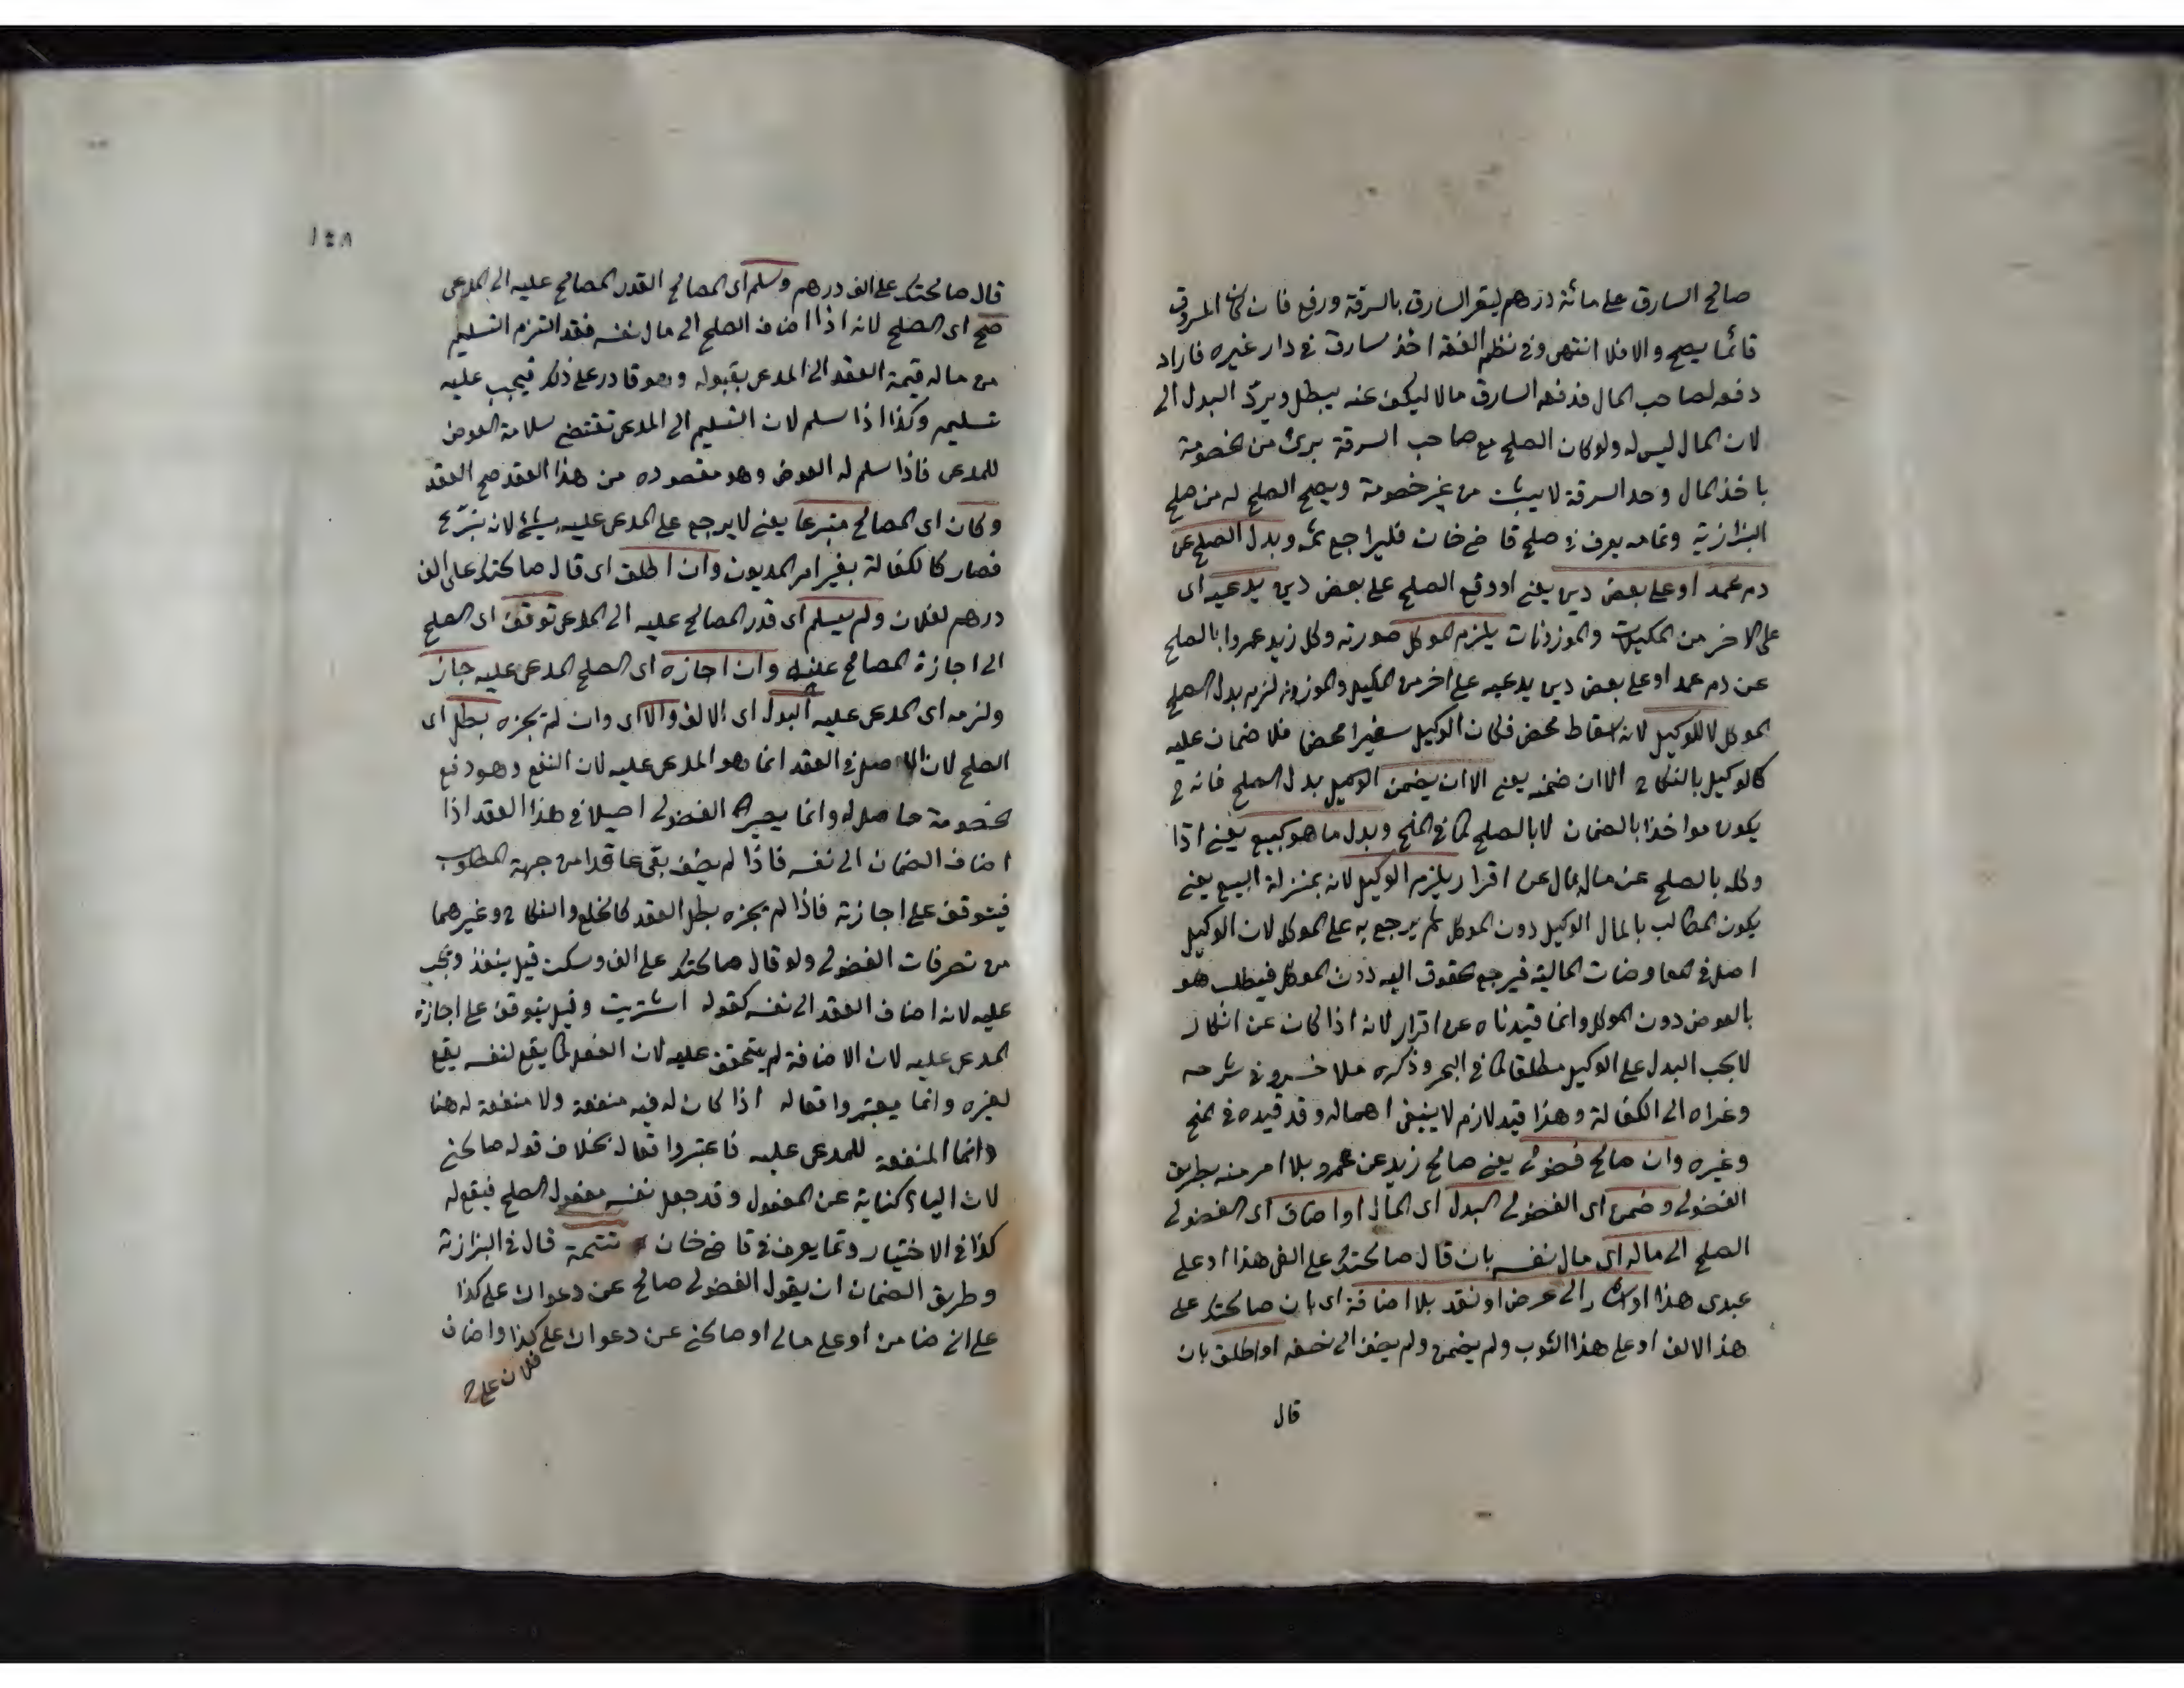 صالح السارق على مائة درهم ليقر السارق بالسرقة ورفع فان كان المسروق
قائما يصح والا فلا انتهى وفى نظم الفقه اخذ سارق فى دار غيره فاراد
دفعه لصاحب المال فدفع السارق مالا ليكف عنه يبطل ويرد البدل الى
لان المال ليس له ولو كان الصلح مع صاحب السرقة برئ من الخصومة
باخذ المال وحد السرقة لا يثبت من غير خصومة ويصح الصلح له من صلح
البزازية وتمامه يعرف فى صلح قاضى خان فليراجع ثمه وبدل الصلح عن
دم عمد او على بعض دين يعنى او وقع الصلح على بعض دين يدعيه اى
على الاخر من المكيلات والموزونات يلزم الموكل صورته وكل زيد عمروا بالصلح
عن دم عمد او على بعض دين يدعيه على اخر من المكيل والموزون لزم بدل الصلح
الموكل لا للوكيل لانه اسقاط محض فكان الوكيل سفيرا محضا فلا ضمان عليه
كالوكيل بالنكاح الا ان ضمنه يعنى الا ان يضمن الوكيل بدل الصلح فانه ح
يكون مواخذا بالضمان لا بالصلح كما فى المنح وبدل ما هو كبيع يعنى اذا
وكله بالصلح عن مال بمال عن اقرار يلزم الوكيل لانه بمنزلة البيع يعنى
يكون المطالب بالمال الوكيل دون الموكل ثم يرجع به على الموكل لان الوكيل
اصل فى المعاوضات المالية فيرجع حقوق اليه دون الموكل فيطلب هو
بالعوض دون الموكل وانما قيدناه عن اقرار لانه اذا كان عن انكار
لا يجب البدل على الوكيل مطلقا كما فى البحر وذكره ملا خسرو فى شرحه
وعزاه الى الكفالة وهذا قيد لازم لا ينبغى اهماله وقد قيده فى المنح
وغيره وان صالح فضولى يعنى صالح زيد عن عمرو بلا امر منه بطريق
الفضولى وضمن اى الفضولى البدل اى المال او اضاف اى الفضولى
الصلح الى ماله اى مال نفسه بان قال صالحتك على الفى هذا او على
عبدى هذا او اشار الى عرض او نقد بلا اضافة اى بان صالحتك على
هذ الالف او على هذا الثوب ولم يضمن ولم يضف الى نفسه او اطلق بان
قال
١٤٨
قال صالحتك على الف درهم وسلم اى المصالح القدر المصالح عليه الى المدعى
صح اى الصلح لانه اذا اضاف الصلح الى مال نفسه فقد التزم التسليم
من ماله قيمة العقد الى المدعى بقبوله وهو قادر على ذلك فيجب عليه
تسليمه وكذا اذا سلم لان التسليم الى المدعى تقتضى سلامة العوض
للمدعى فاذا سلم له العوض وهو مقصوده من هذا العقد صح العقد
وكان اى المصالح متبرعا يعنى لا يرجع على المدعى عليه بشئ لانه تبرع
فصار كالكفالة بغير امر المديون وان اطلق اى قال صالحتك على الف
درهم لفلان ولم يسلم اى قدر المصالح عليه الى المدعى توقف اى الصلح
الى اجازة المصالح عنه وان اجازه اى الصلح المدعى عليه جاز
ولزمه اى المدعى عليه البدل اى الالف والا اى وان لم يجزه بطل اى
الصلح لان الاصل فى العقد انما هو المدعى عليه لان النفع وهو دفع
الخصومة حاصل له وانما يصير الفضولى اصيلا فى هذا العقد اذا
اضاف الضمان الى نفسه فاذا لم يضف بقى عاقدا من جهة المطلوب
فيتوقف على اجازته فاذا لم يجزه بطل العقد كالخلع والنكاح وغيرهما
من تصرفات الفضولى ولو قال صالحتك على الف وسكت قيل ينفذ ويجب
عليه لانه اضاف العقد الى نفسه كقوله اشتريت وقيل يتوقف على اجازة
المدعى عليه لان الاضافة لم يتحقق عليه لان الفعل كما يقع لنفسه يقع
لغيره وانما يعتبر وافعاله اذا كان له فيه منفعة ولا منفعة له هنا
وانما المنفعة للمدعى عليه فاعتبروا فعاله بخلاف قوله صالحنى
لان الياء كناية عن المفعول وقد جعل نفسه مفعول الصلح فيقع له
كذا فى الاختيار وتما يعرف فى قاضى خان تتمة قال فى البزازية
وطريق الضمان ان يقول الفضولى صالح عن دعواك على كذا
على انى ضامن او على مالى او صالحنى عن دعواك على كذا واضاف
فلان على